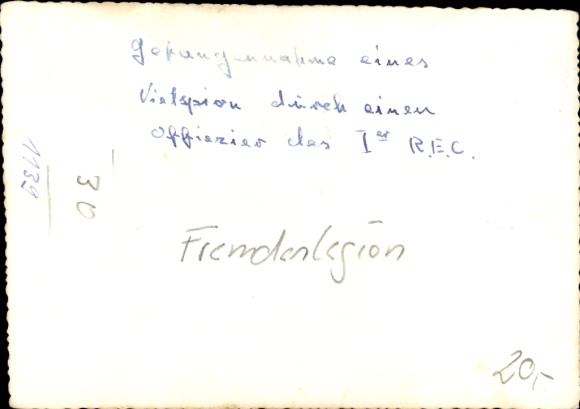 Gefangennahme eines
Vietspion durch einen
Offiezier des I er R.E.C.
1139
30
Fremdenlegion
20,-